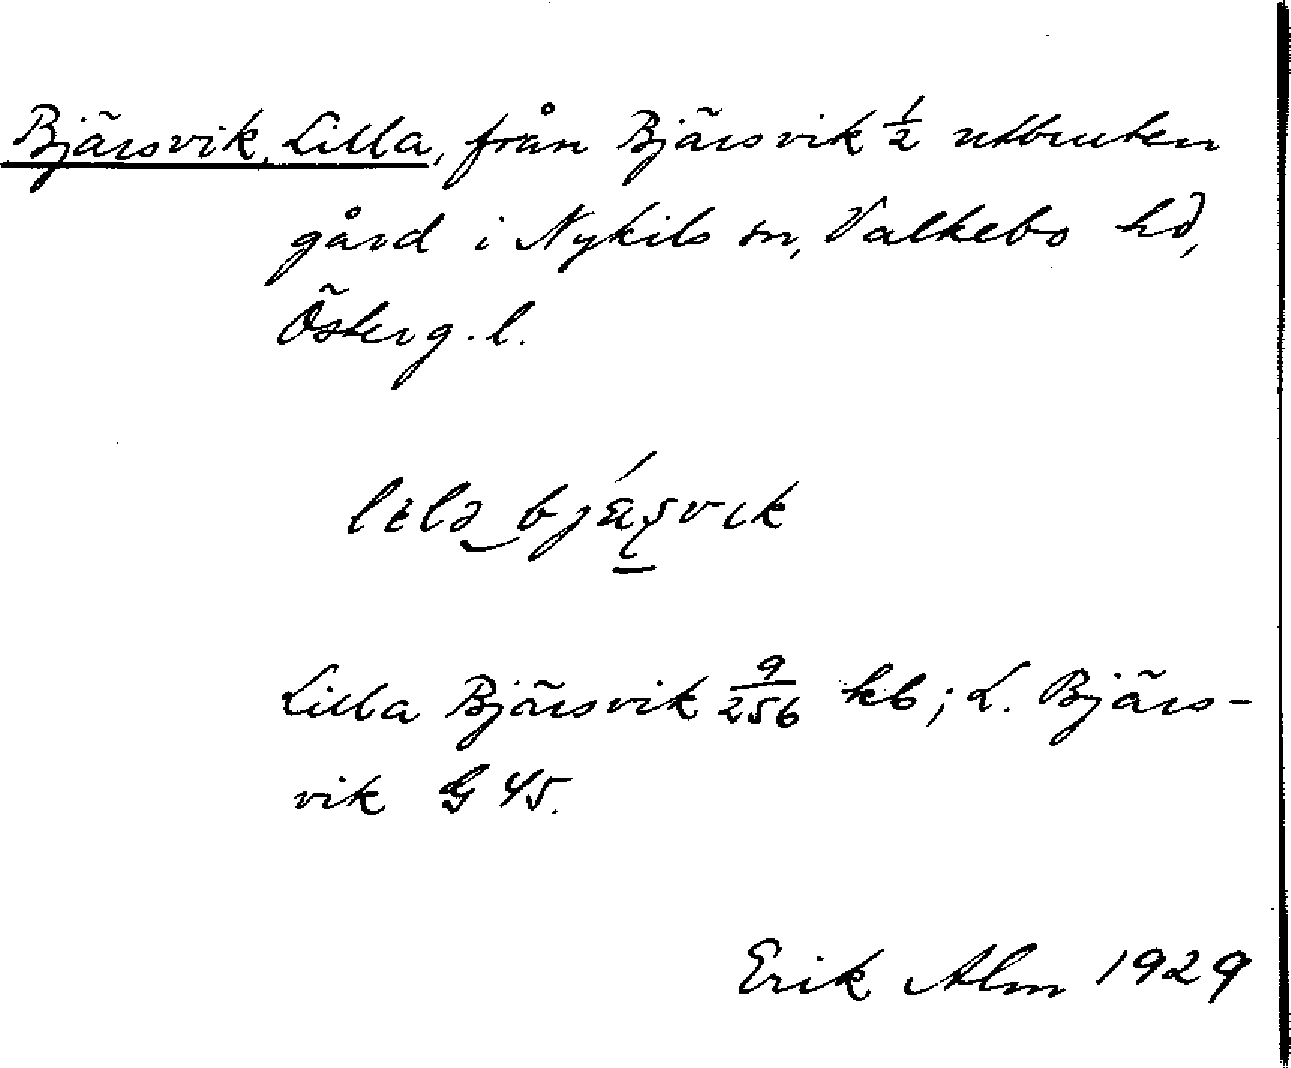 Bjärsvik, Lilla, från Bjärsvik 1/2 utbruten
gård i Nykils sn, Valkebo hd,
Österg. l.
Lilla Bjärsvik 9/256 kb; L. Bjärs-
vik G 45.
Erik Alm 1929